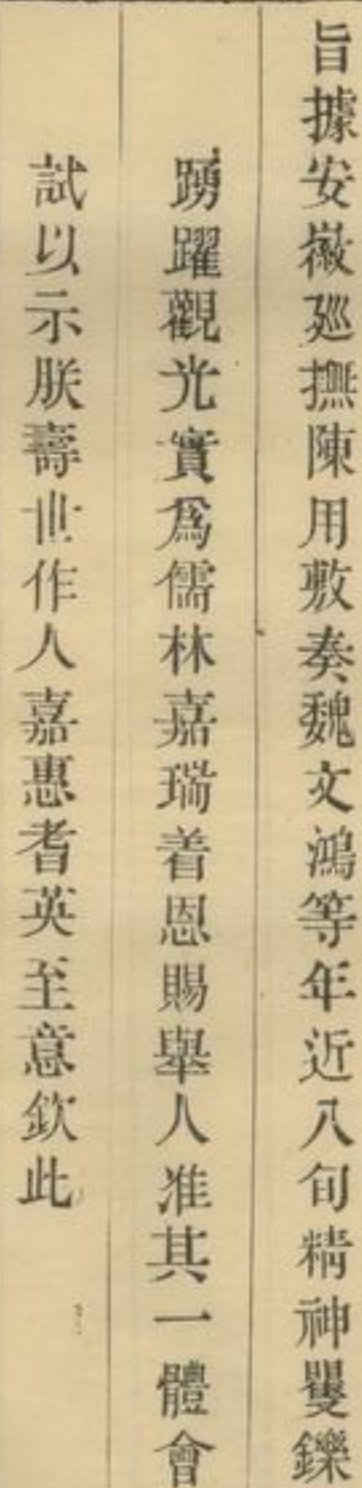 旨據安徽廵撫陳用敷奏魏文鴻等年近八旬精神矍鑠
踴躍觀光實爲儒林嘉瑞着恩賜舉人准其一體會
試以示朕壽世作人嘉惠耆英至意欽此